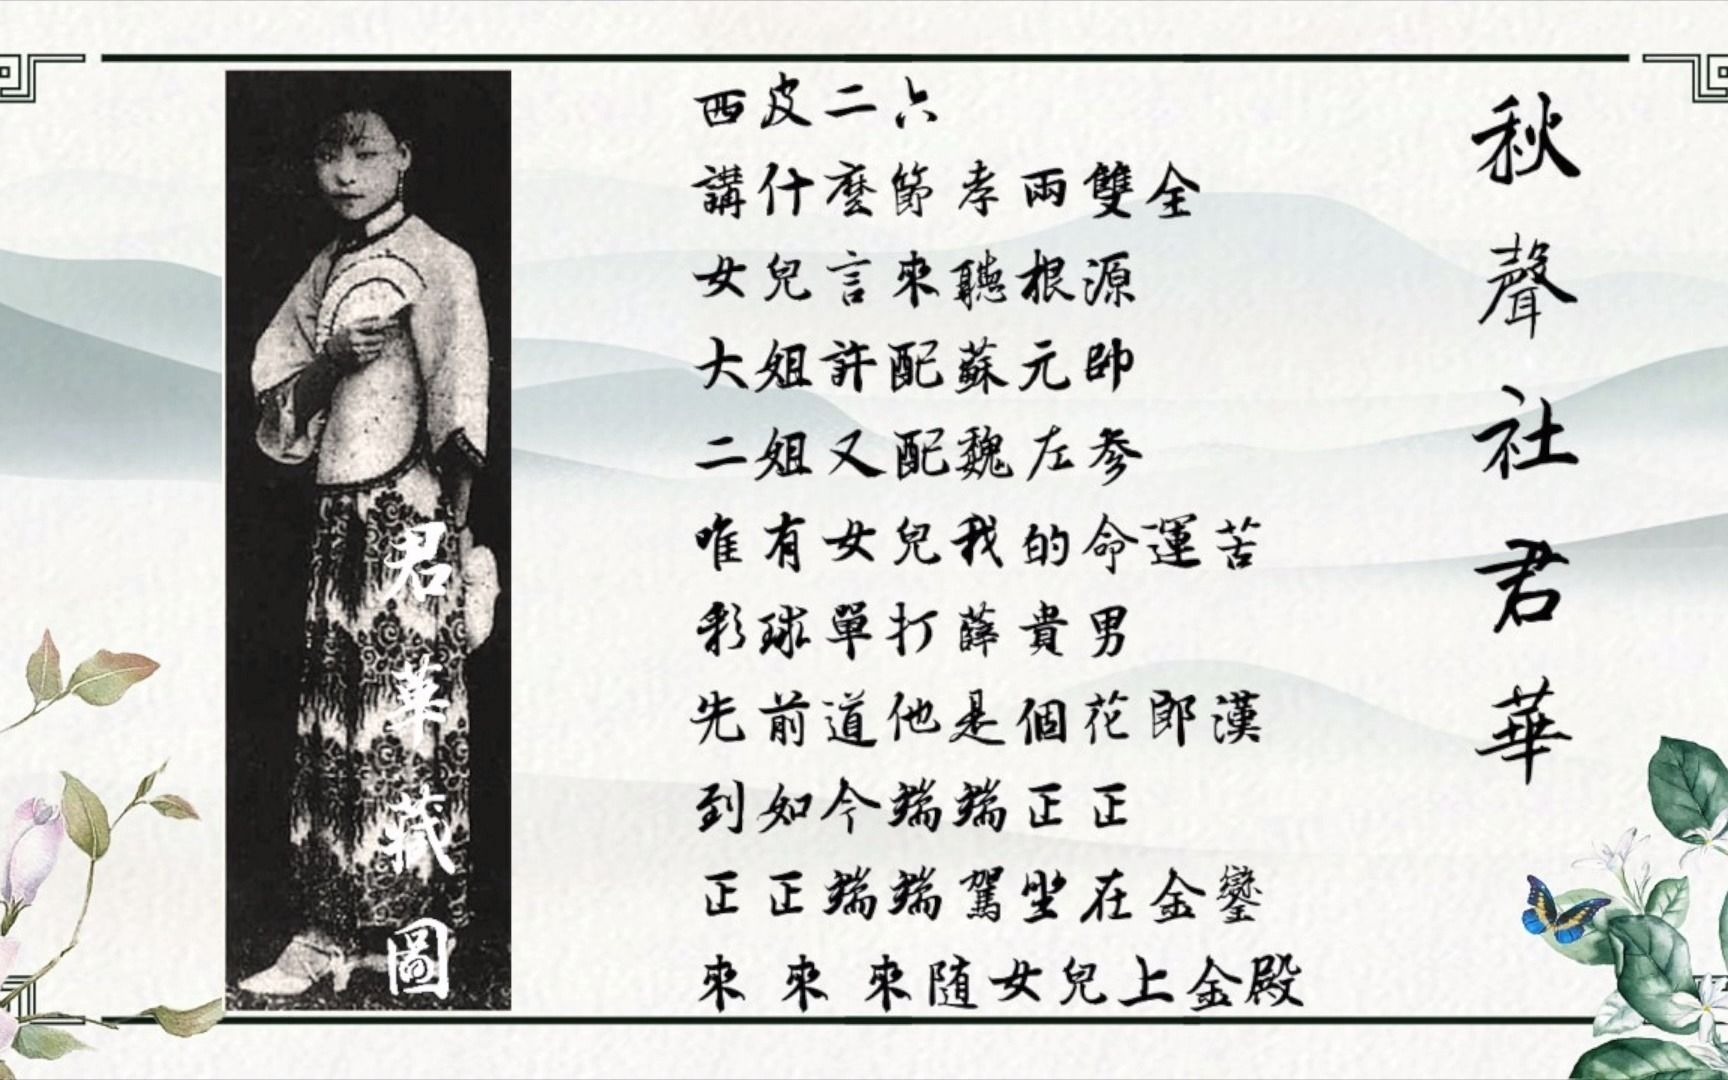 西皮二六
講什麼節孝兩雙全
女兒言來聽根源
大姐許配蘇元帥
二姐又配魏左參
唯有女兒我的命運苦
彩球單打薛貴男
先前道他是個花郎漢
到如今端端正正
正正端端駕坐在金鑾
來 來 來隨女兒上金殿
秋聲社君華
君華藏圖